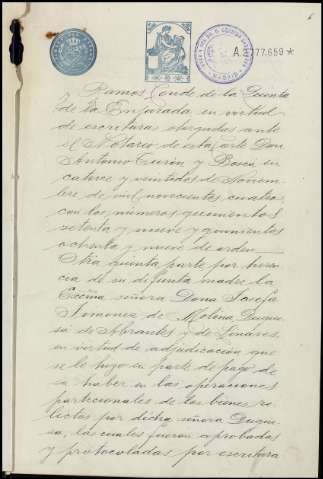 A.2.777.659 *
Ramos Conde de la Quinta
de la Enjarada en virtud
de escrituras otorgadas ante
el Notario de esta Corte Don
Antonio Turón y Boscá en
catorce y veintidos de Noviem-
bre de mil novecientos cuatro,
con los números quinientos
setenta y nueve y quinientos
ochenta y nueve de orden
Otra quinta parte por heren-
cia de su difunta madre la
Excma señora Doña Josefa
Jimenez de Molina, Duque-
sa de Abrantes y de Linares,
en virtud de adjudicación que
se le hizo en parte de pago de
su haber en las operaciones
particionales de los bienes re-
lictos por dicha señora Duque-
sa, las cuales fueron aprobadas
y protocoladas por escritura